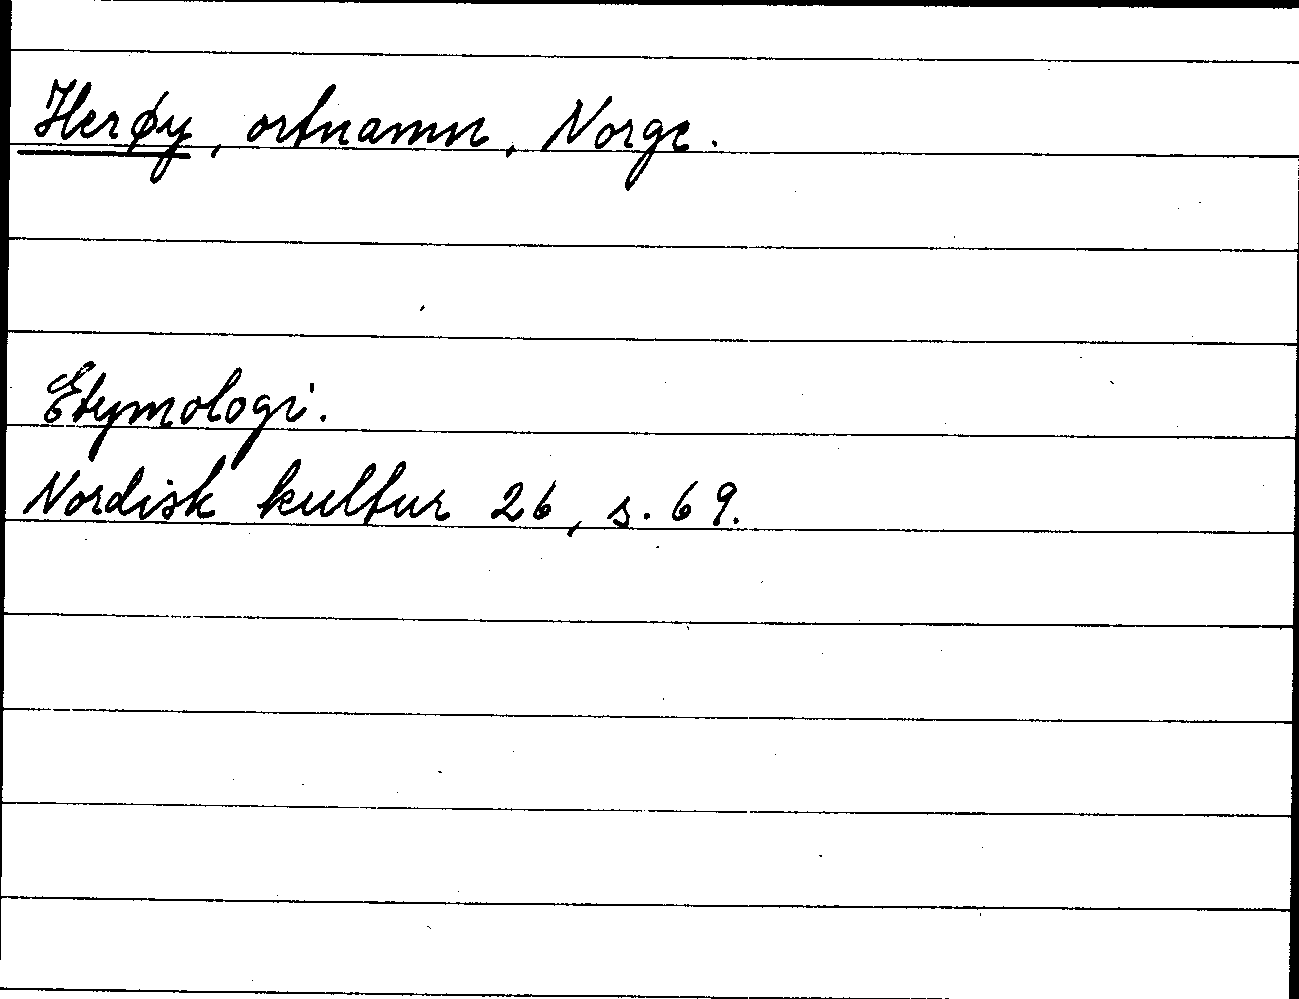 Herøy, ortnamn, Norge.
Etymologi.
Nordisk kultur 26, s. 69.